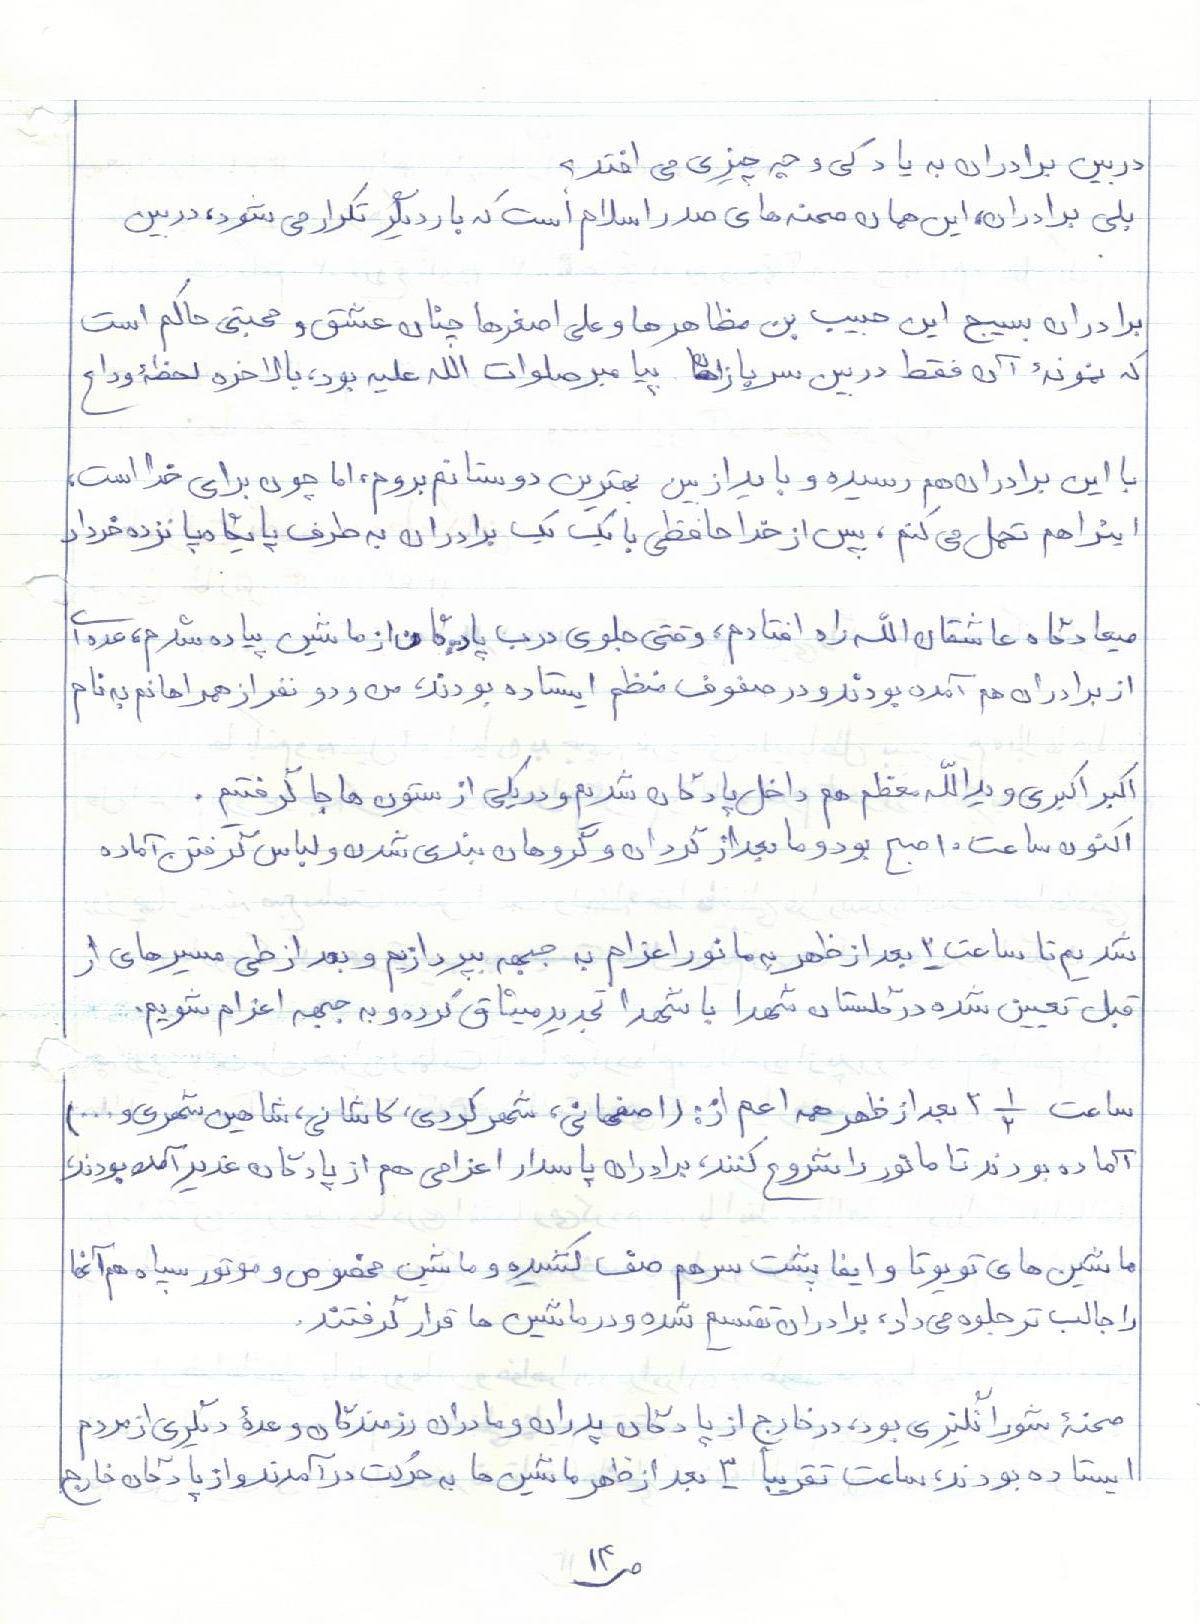 در بین برادران به یاد کی و چه چیزی می افتد؟
بلی برادران، این همان صحنه های صدر اسلام است که بار دیگر تکرار می شود، در بین
برادران بسیج این حبیب بن مظاهرها و علی اصغرها چنان عشق و محبتی حاکم است
که نمونهٔ آن فقط در بین سربازان پیامبر صلوات الله علیه بود، بالاخره لحظهٔ وداع
با این برادران هم رسیده و باید از بین بهترین دوستانم بروم، اما چون برای خدا است،
اینرا هم تحمل می کنم، پس از خداحافظی با یک یک برادران به طرف پایگاه پانزده خرداد
میعادگاه عاشقان الله راه افتادم، وقتی جلوی درب پادگان از ماشین پیاده شدم، عده ای
از برادران هم آمده بودند و در صفوف منظم ایستاده بودند، من و دو نفر از همراهانم به نام
اکبر اکبری و یدالله معظم هم داخل پادگان شدیم و در یکی از ستون ها جا گرفتیم.
اکنون ساعت ۱۰ صبح بود و ما بعد از گردان و گروهان بندی شدن و لباس گرفتن آماده
شدیم تا ساعت ۲ بعد از ظهر به مانور اعزام به جبهه بپردازیم و بعد از طی مسیرهای از
قبل تعیین شده در گلستان شهدا با شهدا تجدید میثاق کرده و به جبهه اعزام شویم.
ساعت ۲ ۱/۲ بعد از ظهر همه اعم از: (اصفهانی، شهرکردی، کاشانی، شاهین شهری و ...)
آماده بودند تا مانور را شروع کنند، برادران پاسدار اعزامی هم از پادگان غدیر آمده بودند،
ماشین های تویوتا و ایفا پشت سر هم صف کشیده و ماشین مخصوص و موتور سپاه هم آنها
را جالب تر جلوه می داد، برادران تقسیم شده و در ماشین ها قرار گرفتند.
صحنهٔ شورانگیزی بود، در خارج از پادگان پدران و مادران رزمندگان و عدهٔ دیگری از مردم
ایستاده بودند، ساعت تقریباً ۳ بعد از ظهر ماشین ها به حرکت در آمدند و از پادگان خارج
ص ۱۴